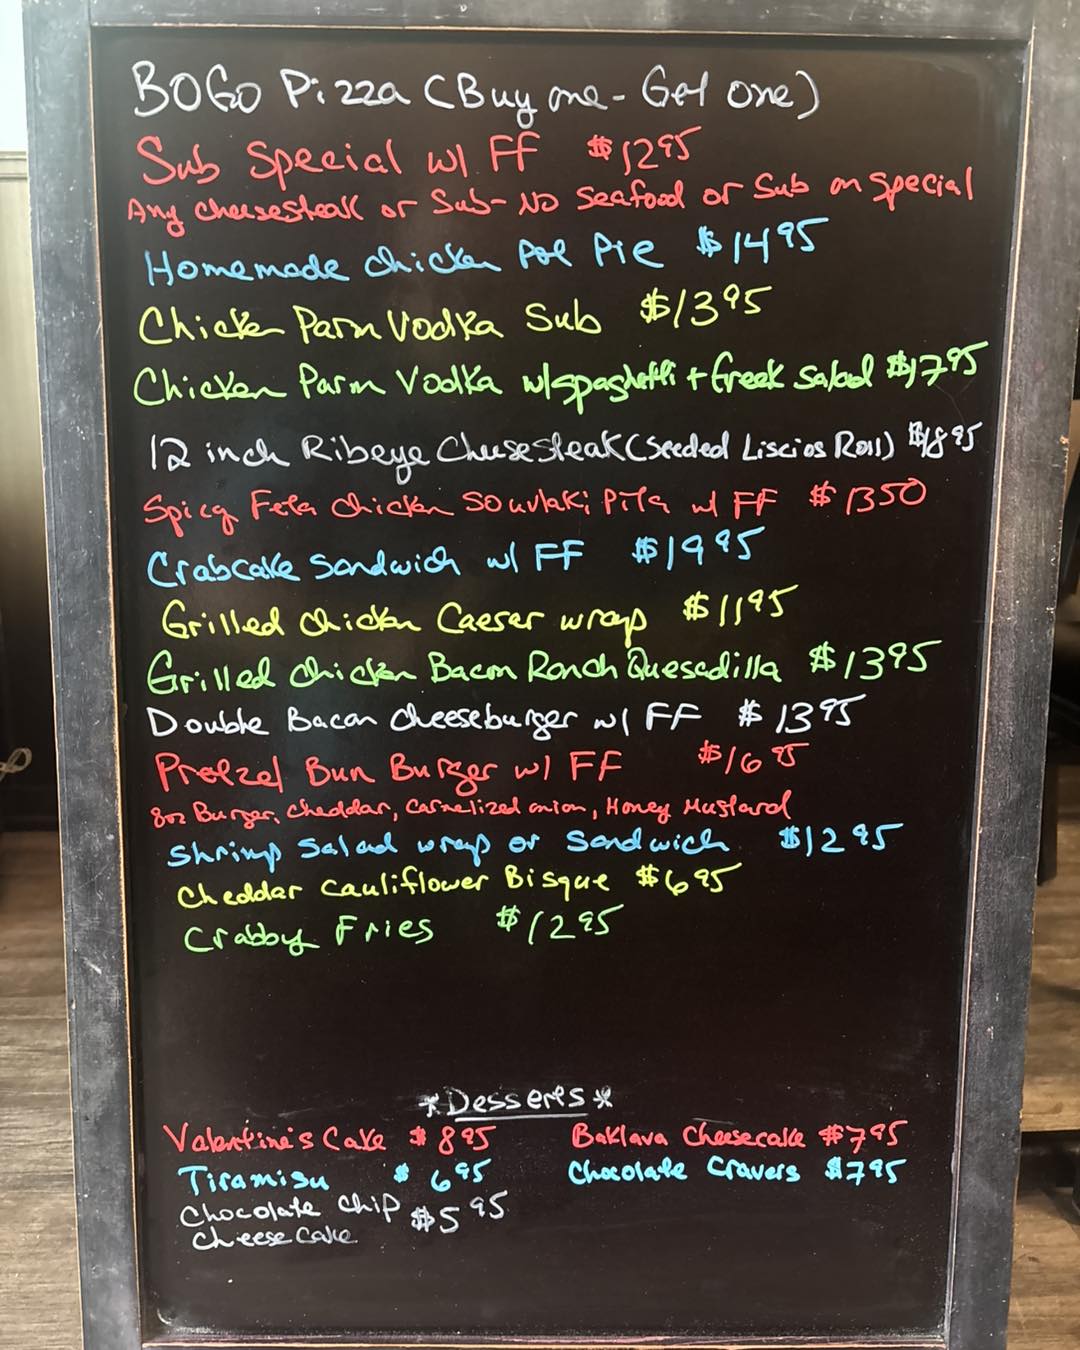 BOGO Pizza (Buy one - Get one)
Sub Special w/ FF $12 95
Any cheesesteak or Sub - No Seafood or Sub on Special
Homemade chicken Pot Pie $14 95
Chicken Parm Vodka Sub $13 95
Chicken Parm Vodka w/spaghetti + Greek Salad $17 95
12 inch Ribeye Cheesesteak (Seeded Liscios Roll) $18 95
Spicy Feta Chicken Souvlaki Pita w/ FF $13 50
Crabcake Sandwich w/ FF $19 95
Grilled Chicken Caesar wrap $11 95
Grilled Chicken Bacon Ranch Quesadilla $13 95
Double Bacon Cheeseburger w/ FF $13 95
Pretzel Bun Burger w/ FF $16 95
8oz Burger, Cheddar, Carmelized onion, Honey Mustard
Shrimp Salad wrap or Sandwich $12 95
Cheddar Cauliflower Bisque $6 95
Crabby Fries $12 95
*Desserts*
Valentine's Cake $8 95
Baklava Cheesecake $7 95
Tiramisu $6 95
Chocolate Cravers $7 95
Chocolate Chip $5 95
Cheesecake